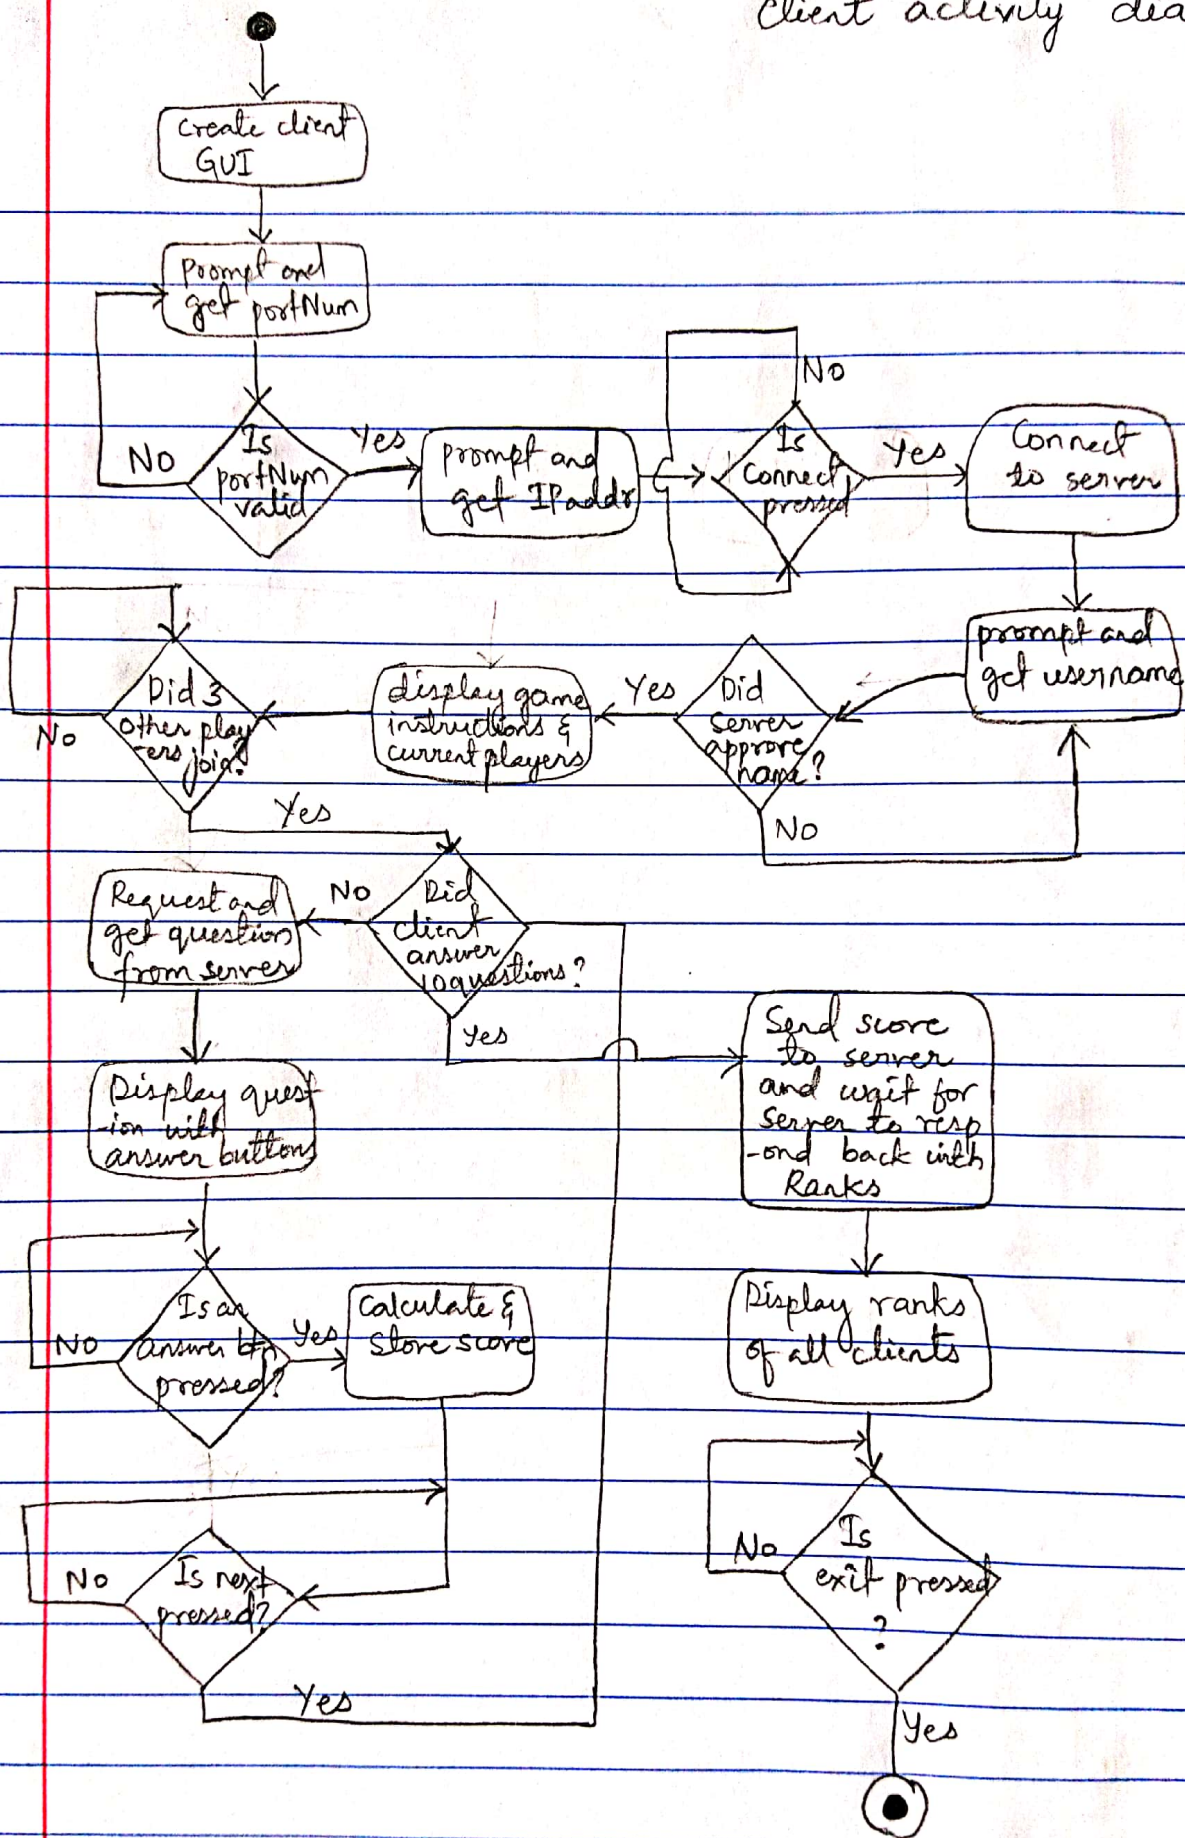 Client activity dia
Create client
GUI
Prompt and
get portNum
Is
portNum
valid
No
Yes
prompt and
get IPaddr
No
Is
Connect
pressed
Yes
Connect
to server
prompt and
get username
Did
server
approve
name?
Yes
No
display game
instructions &
current players
Did 3
other play
-ers join?
No
Yes
Did
client
answer
10 questions?
No
Yes
Request and
get question
from server
Display quest
-ion with
answer buttons
Is an
answer btn
pressed?
No
Yes
Calculate &
Store score
Is next
pressed?
No
Yes
Send score
to server
and wait for
Server to resp
-ond back with
Ranks
Display ranks
of all clients
Is
exit pressed
?
No
Yes